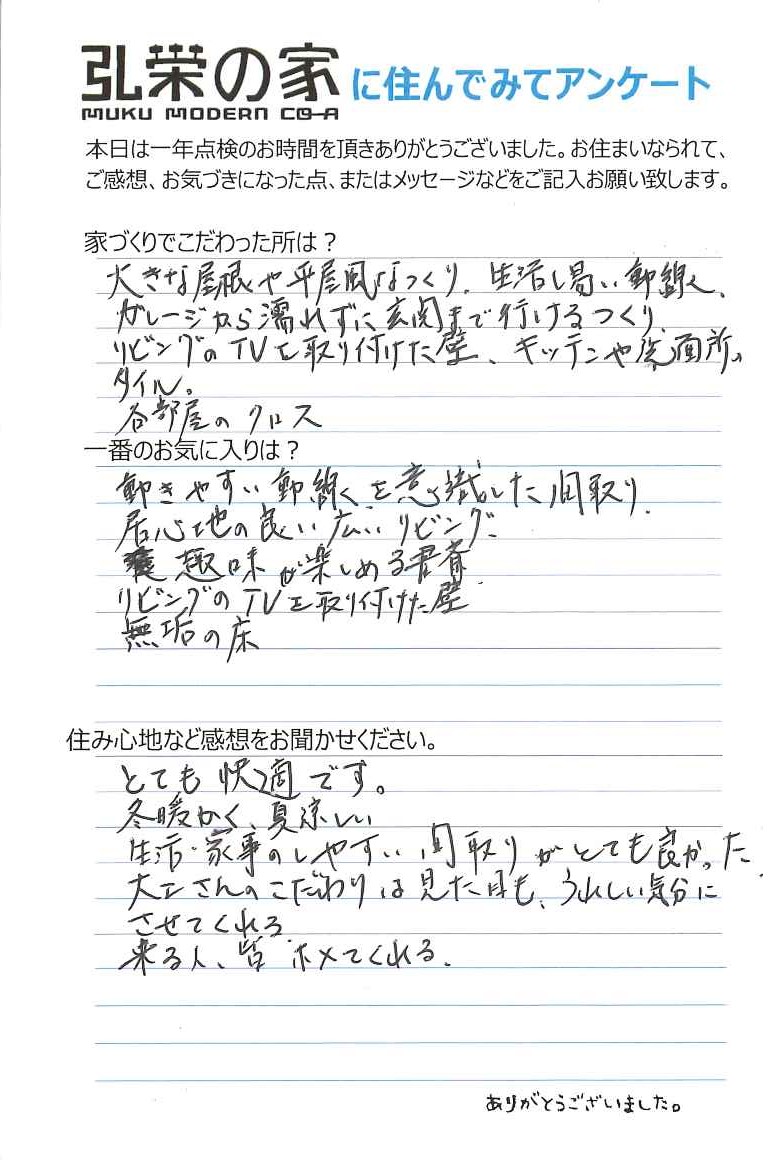 弘栄の家に住んでみてアンケート
MUKU MODERN CO-A
本日は一年点検のお時間を頂きありがとうございました。お住まいなられて、
ご感想、お気づきになった点、またはメッセージなどをご記入お願い致します。
家づくりでこだわった所は？
大きな屋根や平屋風なつくり、生活し易い動線、
ガレージから濡れずに玄関まで行けるつくり、
リビングのTVを取り付けた壁、キッチンや洗面所の
タイル。
各部屋のクロス
一番のお気に入りは？
動きやすい動線を意識した間取り、
居心地の良い広いリビング、
趣味が楽しめる書斎、
リビングのTVを取り付けた壁
無垢の床
住み心地など感想をお聞かせください。
とても快適です。
冬暖かく、夏涼しい
生活・家事のしやすい間取りがとても良かった。
大工さんのこだわりは見た目も、うれしい気分に
させてくれる
来る人、皆ホメてくれる。
ありがとうございました。